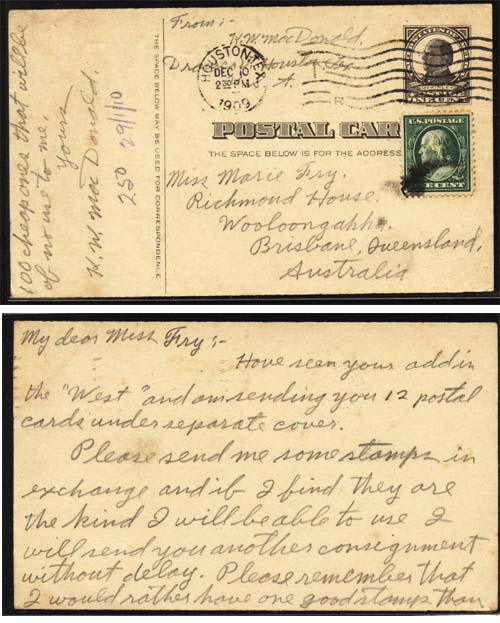 From:-
H.W. MacDonald.
HOUSTON, TEX.
DEC 10
2 30 PM
1909
A.
ONE CENT
U.S. POSTAGE
ONE CENT
POSTAL CAR
THE SPACE BELOW IS FOR THE ADDRESS
THE SPACE BELOW MAY BE USED FOR CORRESPONDENCE
Miss Marie Fry.
Richmond House.
Wooloongabba.
Brisbane, Queensland,
Australia
100 cheap ones that will be
of no use to me.
Yours
H. W. MacDonald.
250 29/1/10
My dear Miss Fry:-
Have seen your add in
the "West" and am sending you 12 postal
cards under separate cover.
Please send me some stamps in
exchange and if I find they are
the kind I will be able to use I
will send you another consignment
without delay. Please remember that
I would rather have one good stamps than